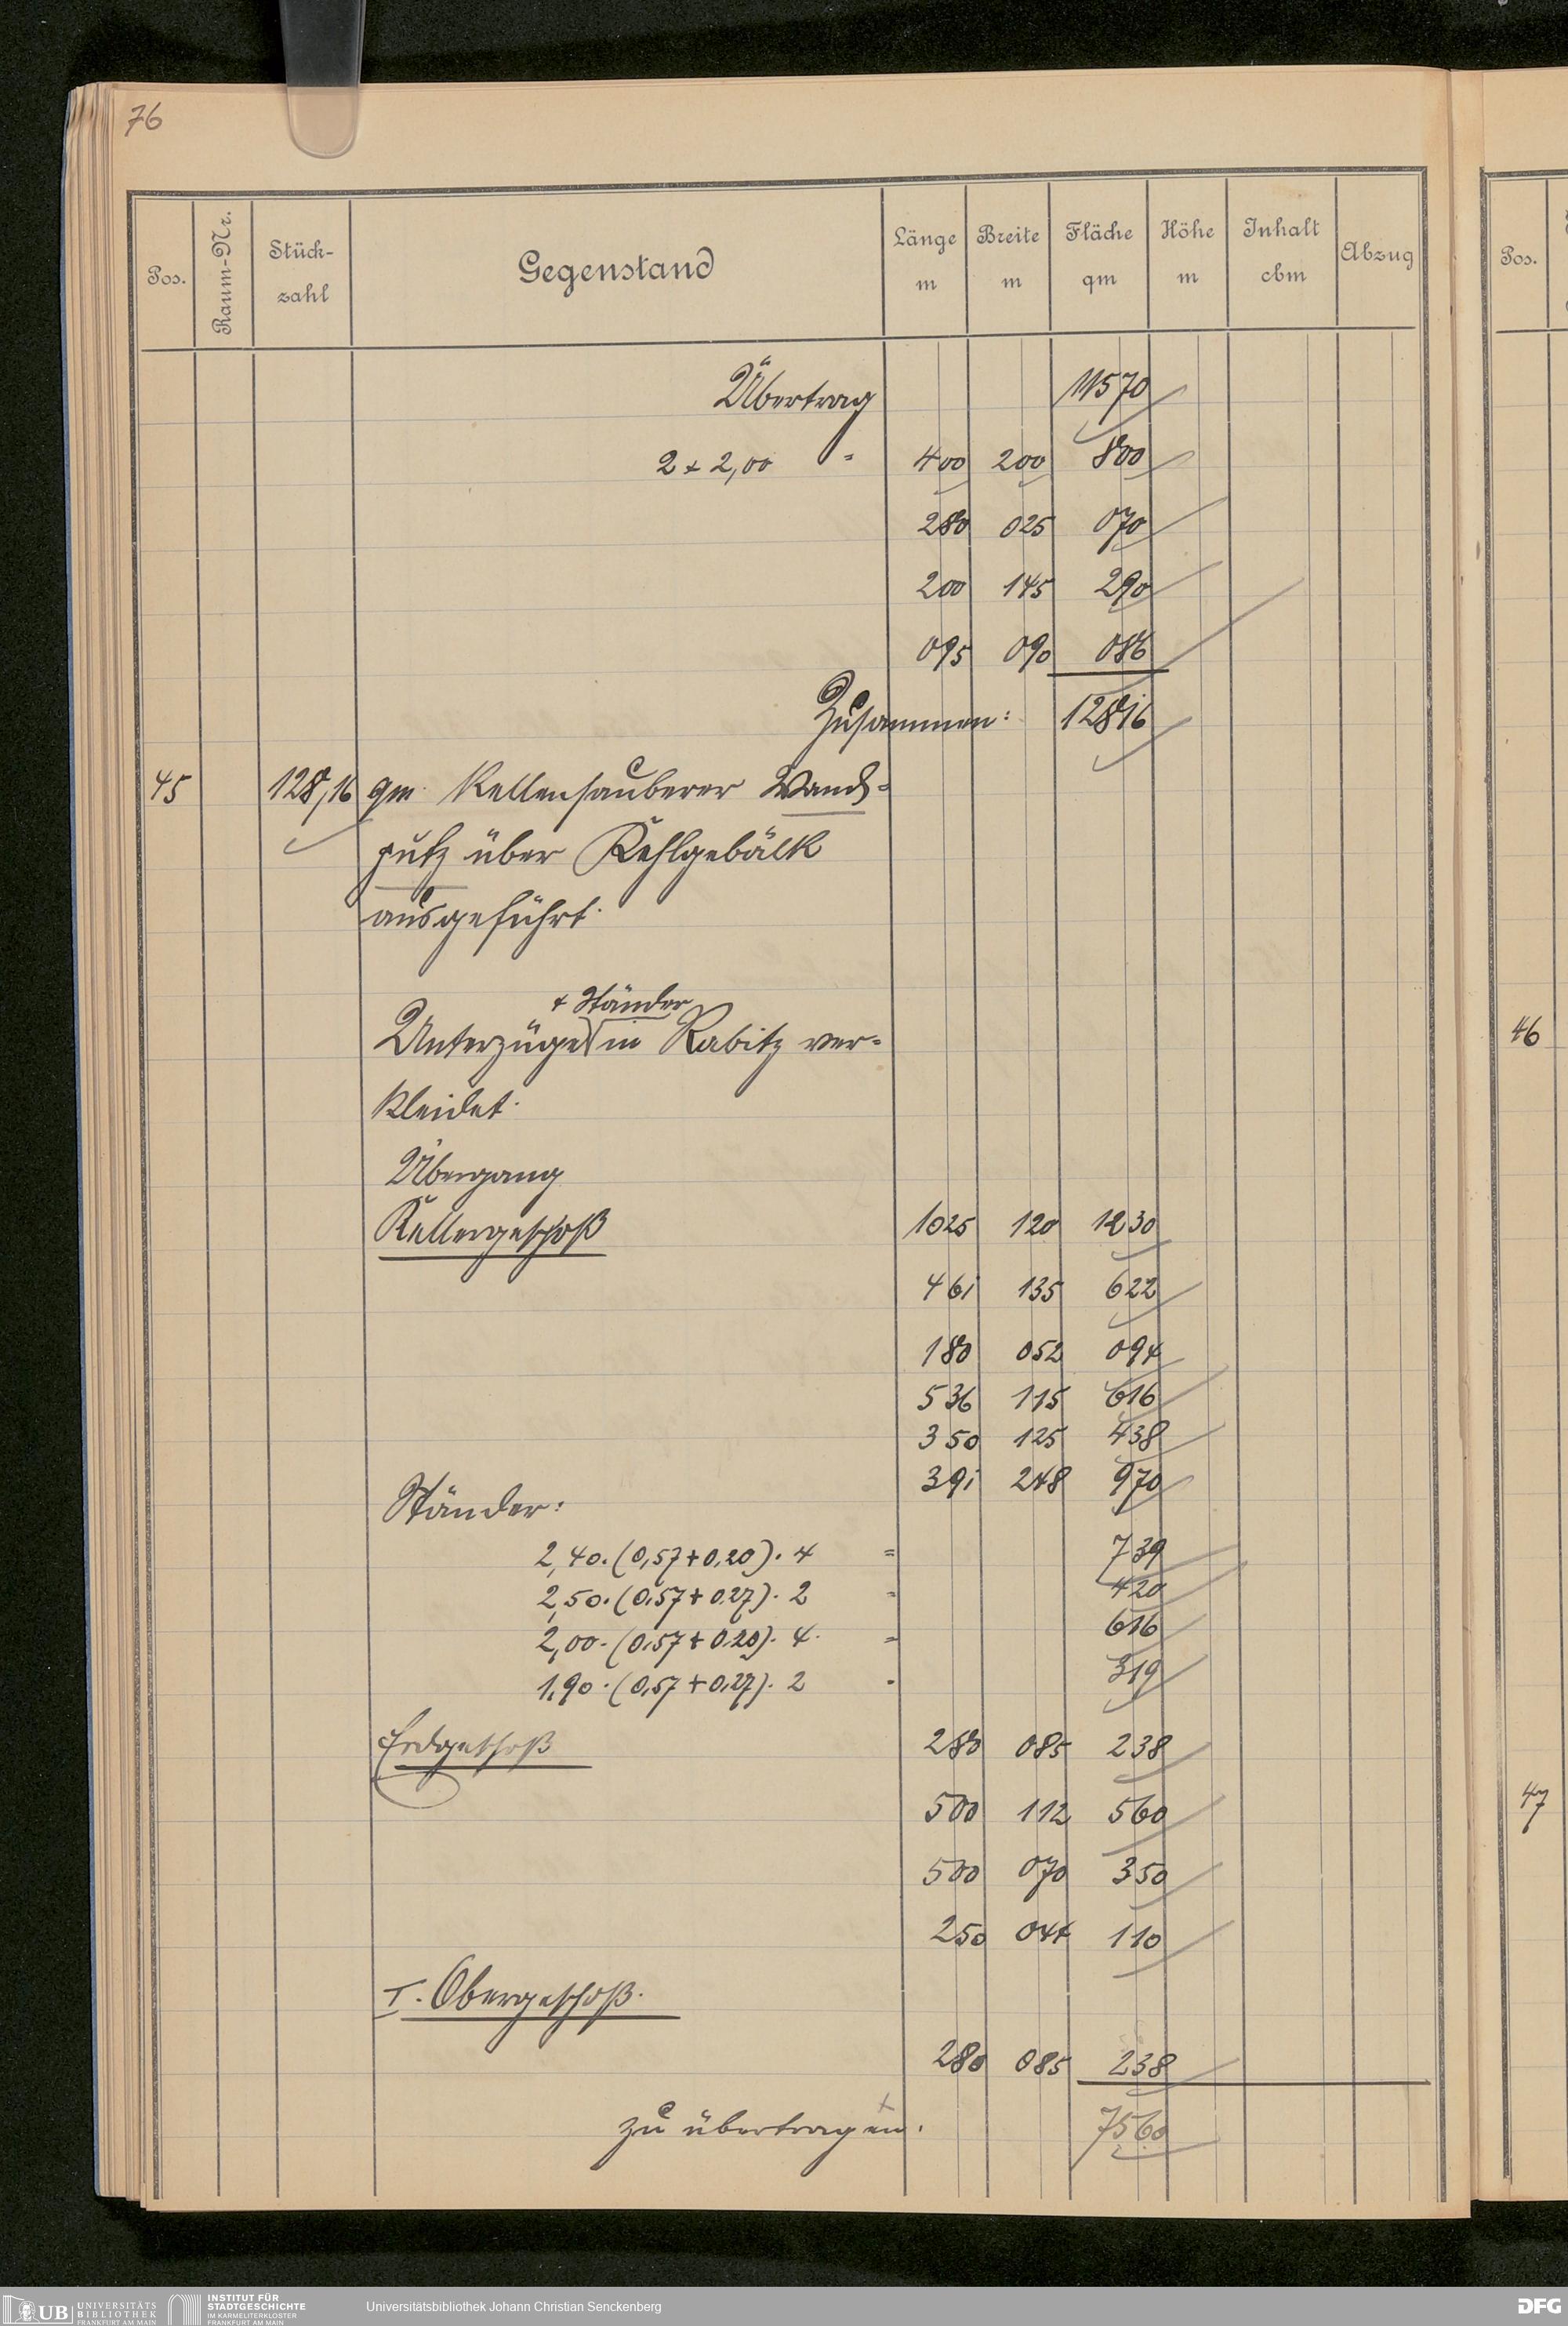 76
Pos. Raum-Nr. Stück-zahl Gegenstand Länge m Breite m Fläche qm Höhe m Inhalt cbm Abzug
Pos.
Übertrag 115 70
2 + 2,00 = 4 00 2 00 8 00
2 80 0 25 0 70
2 00 1 45 2 90
0 95 0 90 0 86
Zusammen: 128 16
45 128,16 qm Kellensauberer Wand-
putz über Kehlgebälk
ausgeführt.
+ Ständer
Unterzüge in Rabitz ver-
46
kleidet.
Übergang
Kellergeschoß 10 25 1 20 12 30
4 61 1 35 6 22
1 80 0 52 0 94
5 36 1 15 6 16
3 50 1 25 4 38
3 91 2 48 9 70
Ständer:
2,40.(0,57+0,20).4 = 7 39
2,50.(0,57+0,27).2 = 4 20
2,00.(0,57+0,20).4. = 6 16
1,90.(0,57+0,27).2 = 3 19
Erdgeschoß 2 80 0 85 2 38
5 00 1 12 5 60
47
5 00 0 70 3 50
2 50 0 44 1 10
I. Obergeschoß.
2 80 0 85 2 38
zu übertragen: 75 60
UB UNIVERSITÄTS BIBLIOTHEK FRANKFURT AM MAIN
INSTITUT FÜR STADTGESCHICHTE IM KARMELITERKLOSTER FRANKFURT AM MAIN
Universitätsbibliothek Johann Christian Senckenberg
DFG